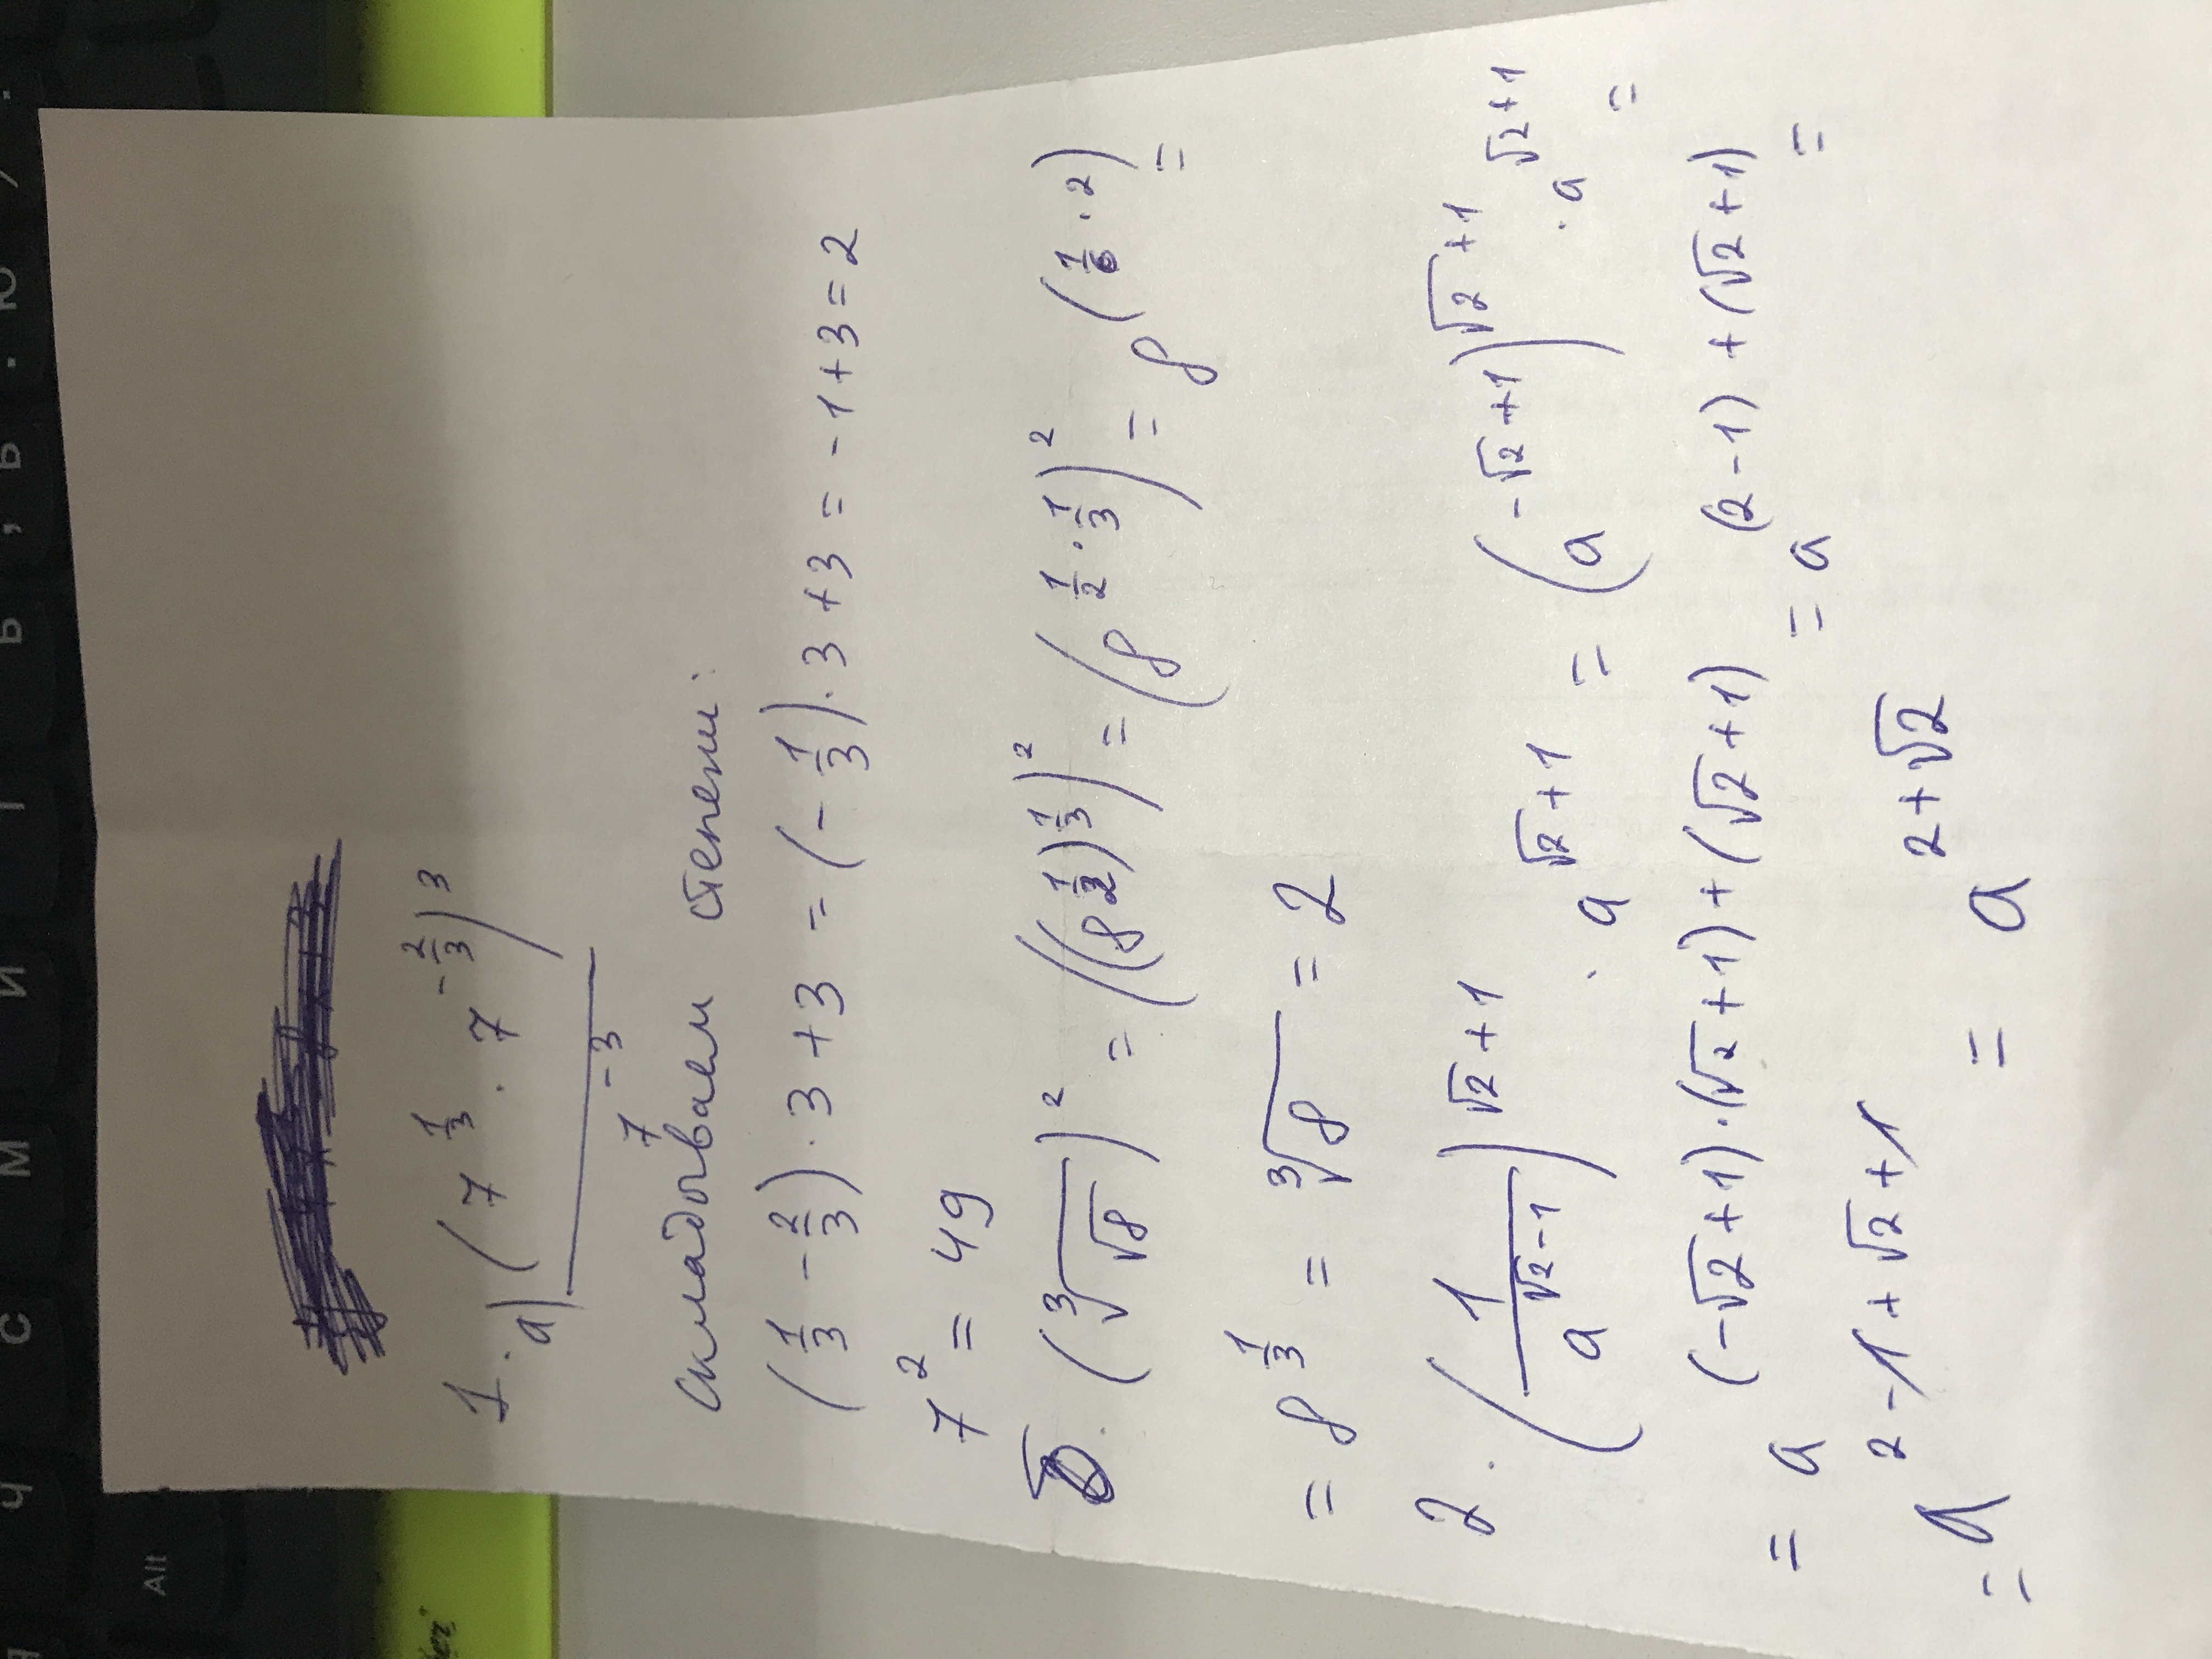 1. а) (7^(1/3) · 7^(-2/3))^3
7^(-3)
складываем степени:
(1/3 - 2/3) · 3 + 3 = (-1/3) · 3 + 3 = -1 + 3 = 2
7^2 = 49
б. (∛√8)^2 = ((8^(1/2))^(1/3))^2 = (8^(1/2 · 1/3))^2 = 8^(1/6 · 2) =
= 8^(1/3) = ∛8 = 2
2. (1/a^(√2-1))^(√2+1) · a^(√2+1) = (a^(-√2+1))^(√2+1) · a^(√2+1) =
= a^((-√2+1)·(√2+1)+(√2+1)) = a^((2-1)+(√2+1)) =
= a^(2-1+√2+1) = a^(2+√2)
Alt